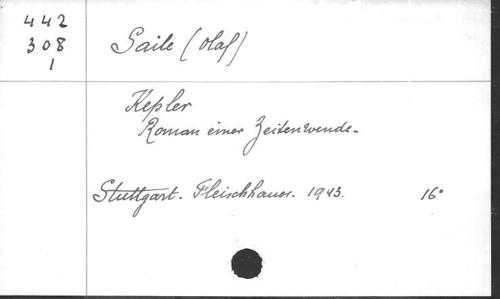 442
308
1
Saile (Olaf)
Kepler
Roman einer Zeitenwende.
Stuttgart. Fleischhauer. 1943. 16°